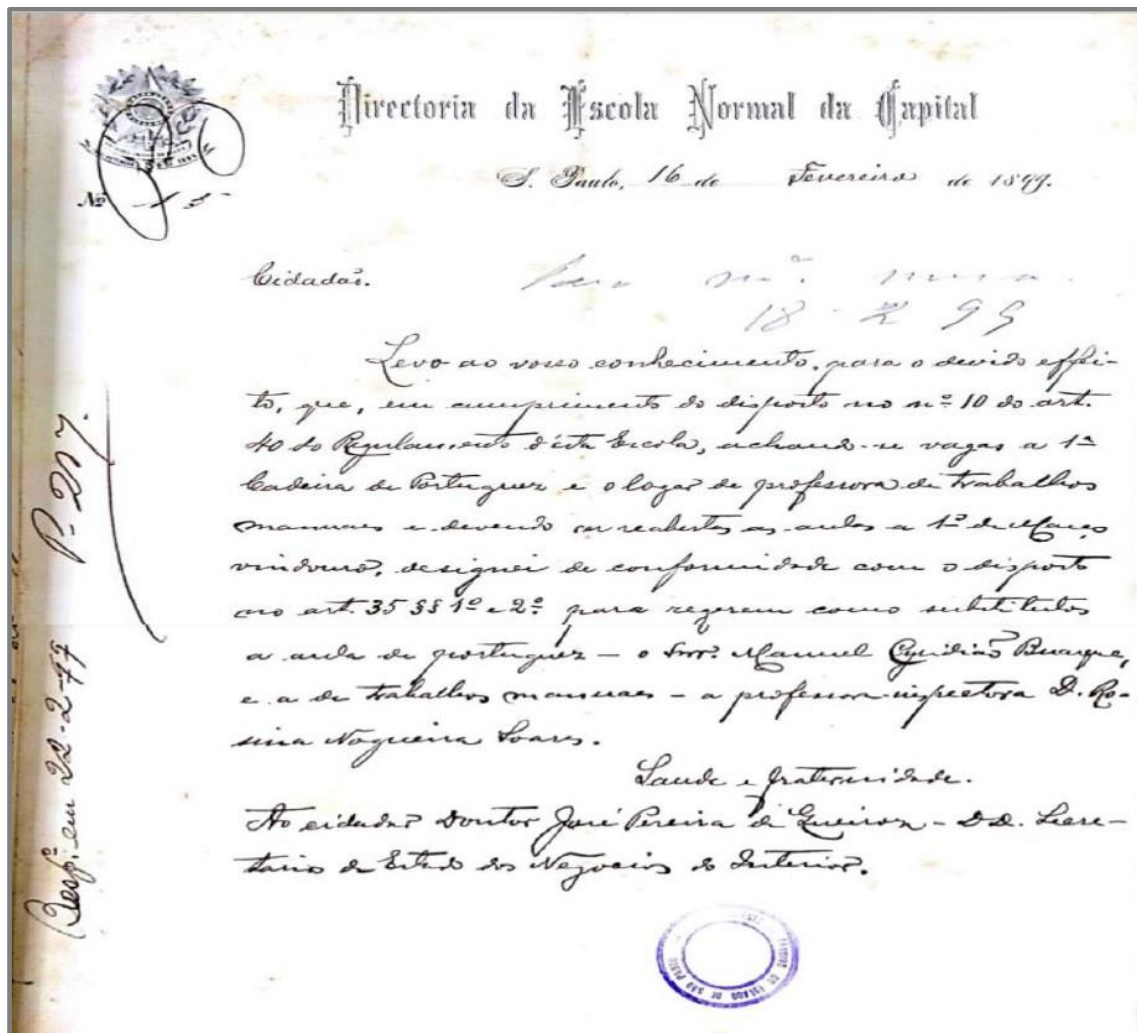 Directoria da Escola Normal da Capital
S. Paulo, 16 de Fevereiro de 1899.
Nº
Cidadão.
18 - 2 99
Levo ao vosso conhecimento, para o devido effei-
to, que, em cumprimento do disposto no nº 10 do art.
40 do Regulamento d'esta Escola, achando-se vagas a 1ª
Cadeira de Portuguez e o logar de professora de trabalhos
manuaes e devendo ser reabertas as aulas a 1º de Março
vindouro, designei de conformidade com o disposto
no art. 35 §§ 1º e 2º para regerem como substitutos
a aula de portuguez – o Snr. Manuel Cyridião Buarque,
e a de trabalhos manuaes – a professora-inspectora D. Ro-
sina Nogueira Soares.
Saude e fraternidade.
Ao cidadão Doutor José Pereira de Queiroz – DD. Secre-
tario de Estado dos Negocios do Interior.
Resp. em 22-2-99
ESTADO DE SÃO PAULO